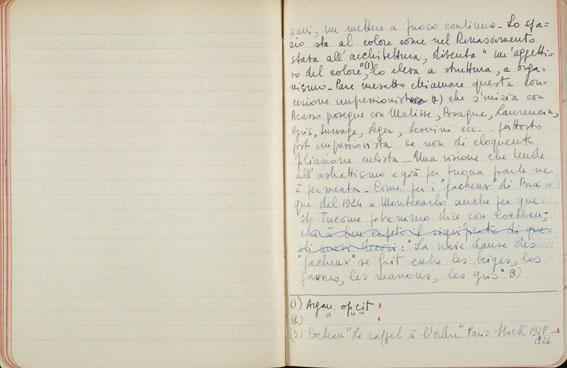 piani, un mettere a fuoco continuo - Lo spa=
zio sta al colore come nel Rinascimento
stava all'architettura, diventa "un'aggetti=
vo del colore"(1), lo eleva a struttura, a orga=
nismo - Pare inesatto chiamare questa con=
cezione impressionista (2) che s'inizia con
Picasso prosegue con Matisse, Braque, Laurencin,
Gris, Survage, Leger, Severini ecc.. piuttosto
post impressionista se non di eloquente
filiazione cubista - Una visione che tende
all'astrattismo e già per buona parte ne
è fermentata - Come per i "facheux" di Bra=
que del 1924 a Montecarlo anche per que=
sto Tricorne potremmo dire con Cocteau -
: "La vraie danse des
"facheux" se fait entre les beiges, les
jaunes, les marrons, les gris" (3)
(1) Argan op. cit
(2)
(3) Cocteau "Le rappel à l'ordre" Paris Stock 1918 -
1926